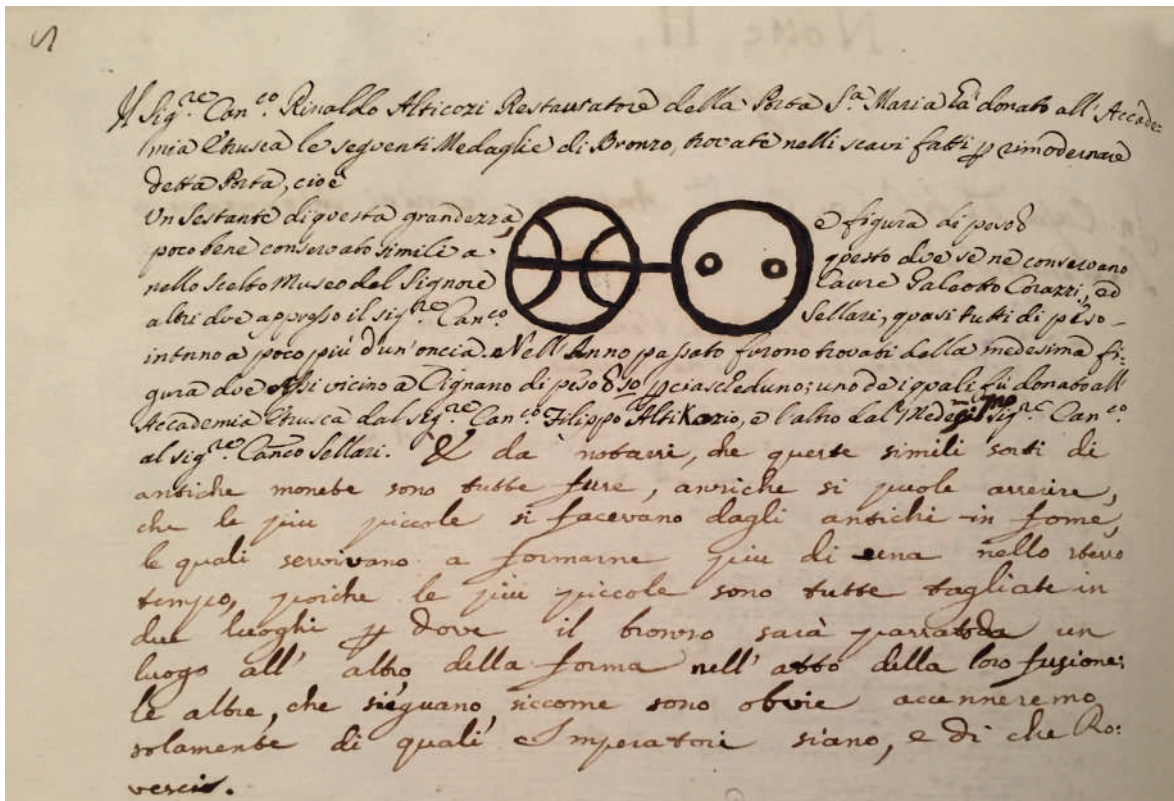 5
Il Sig.re Can.co Rinaldo Alticozi Restauratore della Porta S.a Maria hà donato all'Accade=
mia Etrusca le seguenti Medaglie di Bronzo, trovate nelli scavi fatti p rimodernare
detta Porta, cioè
Un Sestante di questa grandezza, e figura di peso
poco bene conservato simili a questo due se ne conservano
nello scelto Museo del Signore Galeotto Corazzi, ed
altri due appresso il sig.re Can.co Sellari, quasi tutti di peso
intorno a poco più d'un'oncia. Nell'Anno passato furono trovati della medesima fi-
gura due Assi vicino a Cignano di peso p ciascheduno; uno de i quali fù donato all'
Accademia Etrusca dal sig.re Can.co Filippo Altikozio, e l'altro dal Medesimo sig.re Can.co
al sig.re Can.co Sellari. È da notarsi, che queste simili sorti di
antiche monete sono tutte fuse, anziche si puole asserire,
che le piu piccole si facevano dagli antichi in forme,
le quali servivano a formarne piu di una nello stesso
tempo, poiche le piu piccole sono tutte tagliate in
due luoghi p dove il bronzo sarà passato da un
luogo all'altro della forma nell'atto della loro fusione:
le altre, che sieguano siccome sono obvie accenneremo
solamente di quali Imperatori siano, e di che Ro:
vescio.